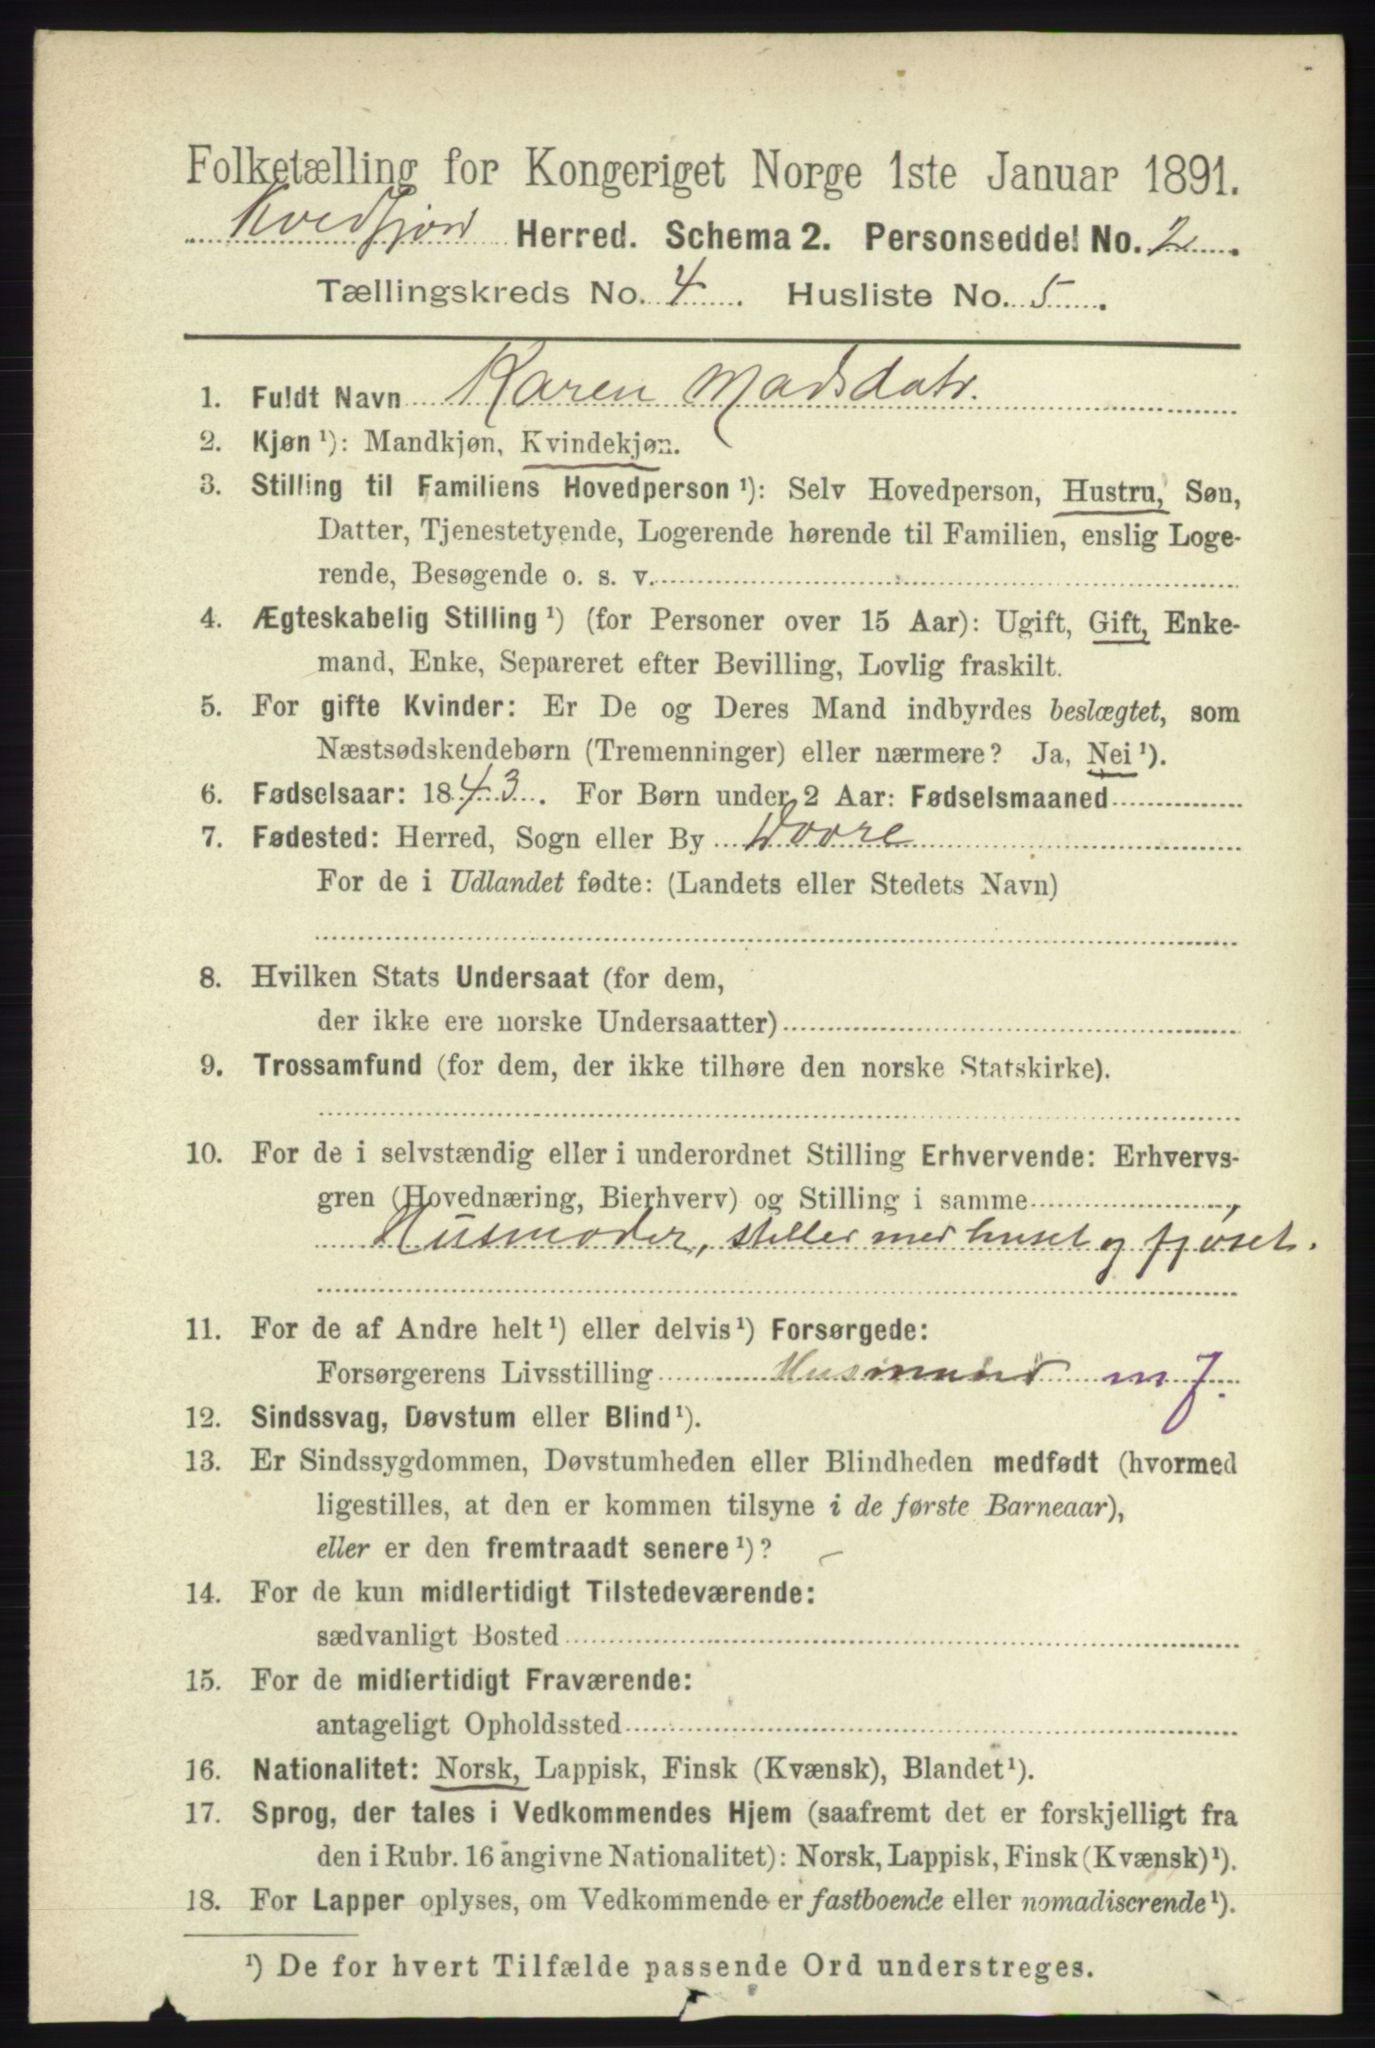 Folketælling for Kongeriget Norge 1ste Januar 1891.
Kvedfjord Herred. Schema 2. Personseddel No. 2
Tællingskreds No. 4. Husliste No. 5.
1. Fuldt Navn Karen Madsdatr.
2. Kjøn ¹): Mandkjøn, Kvindekjøn.
3. Stilling til Familiens Hovedperson ¹): Selv Hovedperson, Hustru, Søn,
Datter, Tjenestetyende, Logerende hørende til Familien, enslig Loge-
rende, Besøgende o. s. v.
4. Ægteskabelig Stilling ¹) (for Personer over 15 Aar): Ugift, Gift, Enke-
mand, Enke, Separeret efter Bevilling, Lovlig fraskilt.
5. For gifte Kvinder: Er De og Deres Mand indbyrdes beslægtet, som
Næstsødskendebørn (Tremenninger) eller nærmere? Ja, Nei ¹).
6. Fødselsaar: 1843. For Børn under 2 Aar: Fødselsmaaned
7. Fødested: Herred, Sogn eller By
For de i Udlandet fødte: (Landets eller Stedets Navn)
8. Hvilken Stats Undersaat (for dem,
der ikke ere norske Undersaatter)
9. Trossamfund (for dem, der ikke tilhøre den norske Statskirke).
10. For de i selvstændig eller i underordnet Stilling Erhvervende: Erhvervs-
gren (Hovednæring, Bierhverv) og Stilling i samme
Husmoder, steller med huset og fjøset.
11. For de af Andre helt ¹) eller delvis ¹) Forsørgede:
Forsørgerens Livsstilling Husmand m J.
12. Sindssvag, Døvstum eller Blind ¹).
13. Er Sindssygdommen, Døvstumheden eller Blindheden medfødt (hvormed
ligestilles, at den er kommen tilsyne i de første Barneaar),
eller er den fremtraadt senere ¹)? –
14. For de kun midlertidigt Tilstedeværende:
sædvanligt Bosted
15. For de midlertidigt Fraværende:
antageligt Opholdssted
16. Nationalitet: Norsk, Lappisk, Finsk (Kvænsk), Blandet ¹).
17. Sprog, der tales i Vedkommendes Hjem (saafremt det er forskjelligt fra
den i Rubr. 16 angivne Nationalitet): Norsk, Lappisk, Finsk (Kvænsk) ¹).
18. For Lapper oplyses, om Vedkommende er fastboende eller nomadiserende ¹).
¹) De for hvert Tilfælde passende Ord understreges.